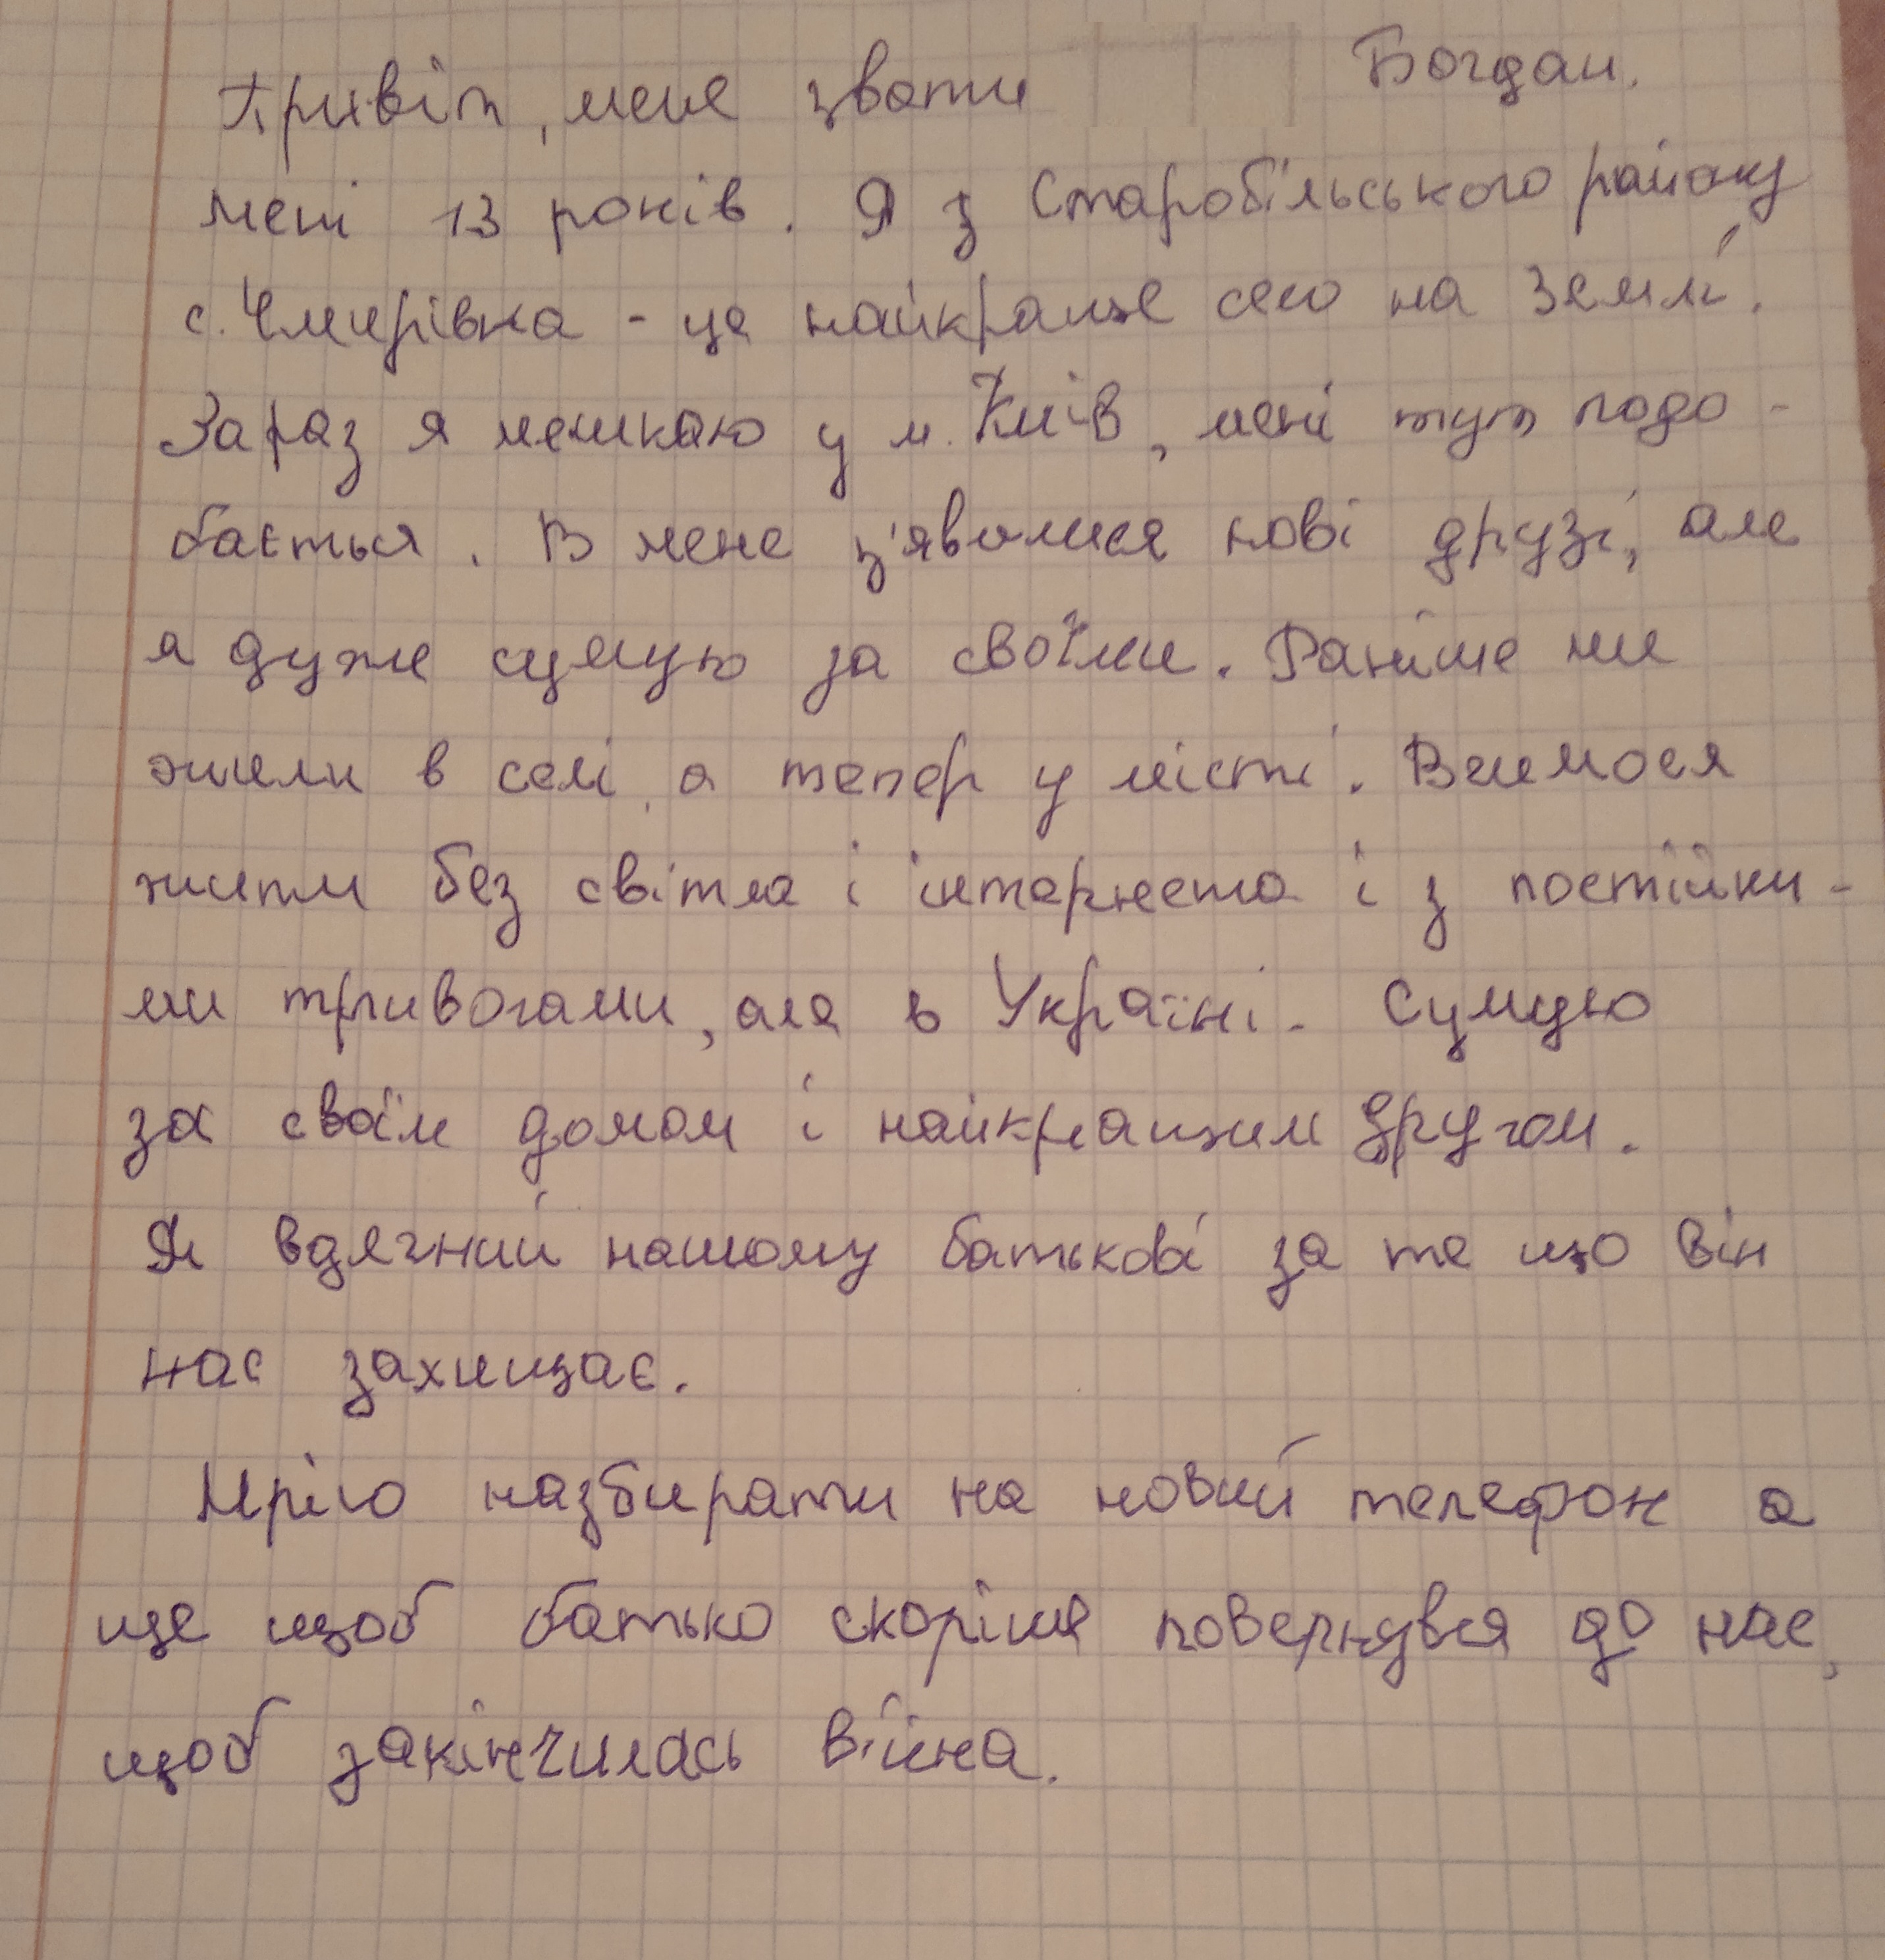 Привіт, мене звати Богдан.
мені 13 років. Я з Старобільського району
с. Чмирівка - це найкраще село на Землі.
Зараз я мешкаю у м. Київ, мені тут подо-
бається. В мене з'явилися нові друзі, але
я дуже сумую за своїми. Раніше ми
жили в селі, а тепер у місті. Вчимося
жити без світла і інтернета і з постійни-
ми тривогами, але в Україні. Сумую
за своїм домом і найкращим другом.
Я вдягний нашому батькові за те що він
нас захищає.
Мрію назбирати на новий телефон а
ще щоб батько скоріше повернувся до нас,
щоб закінчилась війна.